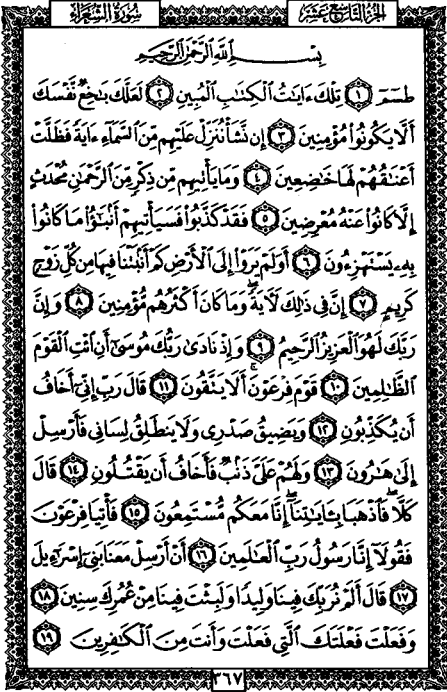 سُورَةُ الشُّعَرَاءِ الجُزْءُ التَّاسِعَ عَشَرَ
بِسْمِ اللَّهِ الرَّحْمَٰنِ الرَّحِيمِ
طسٓمٓ ١ تِلْكَ ءَايَٰتُ ٱلْكِتَٰبِ ٱلْمُبِينِ ٢ لَعَلَّكَ بَٰخِعٌ نَّفْسَكَ
أَلَّا يَكُونُوا۟ مُؤْمِنِينَ ٣ إِن نَّشَأْ نُنَزِّلْ عَلَيْهِم مِّنَ ٱلسَّمَآءِ ءَايَةً فَظَلَّتْ
أَعْنَٰقُهُمْ لَهَا خَٰضِعِينَ ٤ وَمَا يَأْتِيهِم مِّن ذِكْرٍ مِّنَ ٱلرَّحْمَٰنِ مُحْدَثٍ
إِلَّا كَانُوا۟ عَنْهُ مُعْرِضِينَ ٥ فَقَدْ كَذَّبُوا۟ فَسَيَأْتِيهِمْ أَنۢبَٰٓؤُا۟ مَا كَانُوا۟
بِهِۦ يَسْتَهْزِءُونَ ٦ أَوَلَمْ يَرَوْا۟ إِلَى ٱلْأَرْضِ كَمْ أَنۢبَتْنَا فِيهَا مِن كُلِّ زَوْجٍ
كَرِيمٍ ٧ إِنَّ فِى ذَٰلِكَ لَءَايَةً ۖ وَمَا كَانَ أَكْثَرُهُم مُّؤْمِنِينَ ٨ وَإِنَّ
رَبَّكَ لَهُوَ ٱلْعَزِيزُ ٱلرَّحِيمُ ٩ وَإِذْ نَادَىٰ رَبُّكَ مُوسَىٰٓ أَنِ ٱئْتِ ٱلْقَوْمَ
ٱلظَّٰلِمِينَ ١٠ قَوْمَ فِرْعَوْنَ ۚ أَلَا يَتَّقُونَ ١١ قَالَ رَبِّ إِنِّىٓ أَخَافُ
أَن يُكَذِّبُونِ ١٢ وَيَضِيقُ صَدْرِى وَلَا يَنطَلِقُ لِسَانِى فَأَرْسِلْ
إِلَىٰ هَٰرُونَ ١٣ وَلَهُمْ عَلَىَّ ذَنۢبٌ فَأَخَافُ أَن يَقْتُلُونِ ١٤ قَالَ
كَلَّا ۖ فَٱذْهَبَا بِـَٔايَٰتِنَآ ۖ إِنَّا مَعَكُم مُّسْتَمِعُونَ ١٥ فَأْتِيَا فِرْعَوْنَ
فَقُولَآ إِنَّا رَسُولُ رَبِّ ٱلْعَٰلَمِينَ ١٦ أَنْ أَرْسِلْ مَعَنَا بَنِىٓ إِسْرَٰٓءِيلَ
١٧ قَالَ أَلَمْ نُرَبِّكَ فِينَا وَلِيدًا وَلَبِثْتَ فِينَا مِنْ عُمُرِكَ سِنِينَ ١٨
وَفَعَلْتَ فَعْلَتَكَ ٱلَّتِى فَعَلْتَ وَأَنتَ مِنَ ٱلْكَٰفِرِينَ ١٩
٣٦٧